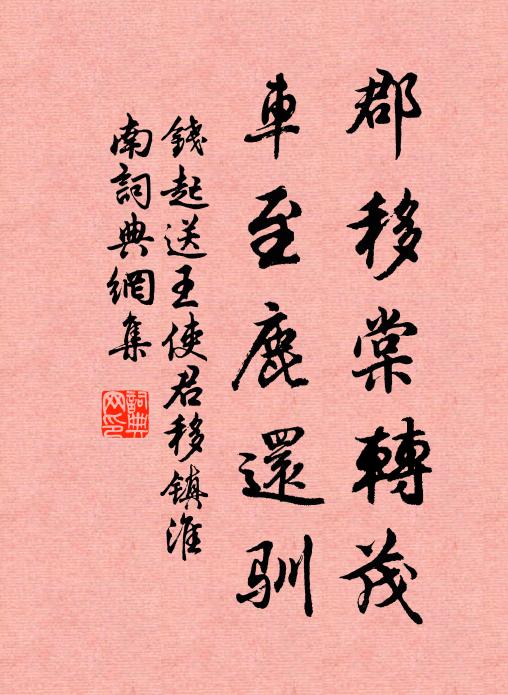 郡移棠轉茂
車至鹿還馴
錢起送王使君移鎮淮
南詞典網集
詞典
网印